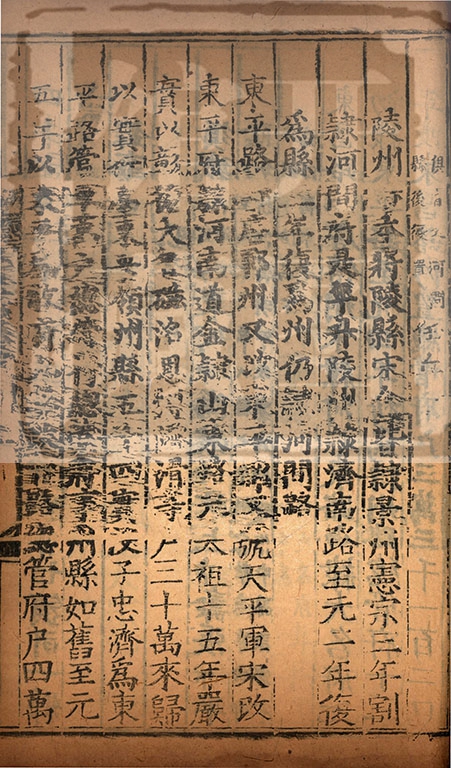 俱省入河間
縣後復置
陵州 本將陵縣宋金皆隸景州憲宗三年割
隸河間府是年升陵州隸濟南路至元二年復
爲縣三年復爲州仍隸河間路
東平路 唐鄆州又改東平郡又號天平軍宋改
東平府隸河南道金隸山東路元太祖十五年嚴
實以彰德大名磁洺恩博濬滑等戶三十萬來歸
以實行臺東平領州縣五十四實沒子忠濟爲東
平路管軍萬戶總管行總管府事州縣如舊至元
五年以東平爲散府路總管府户四萬